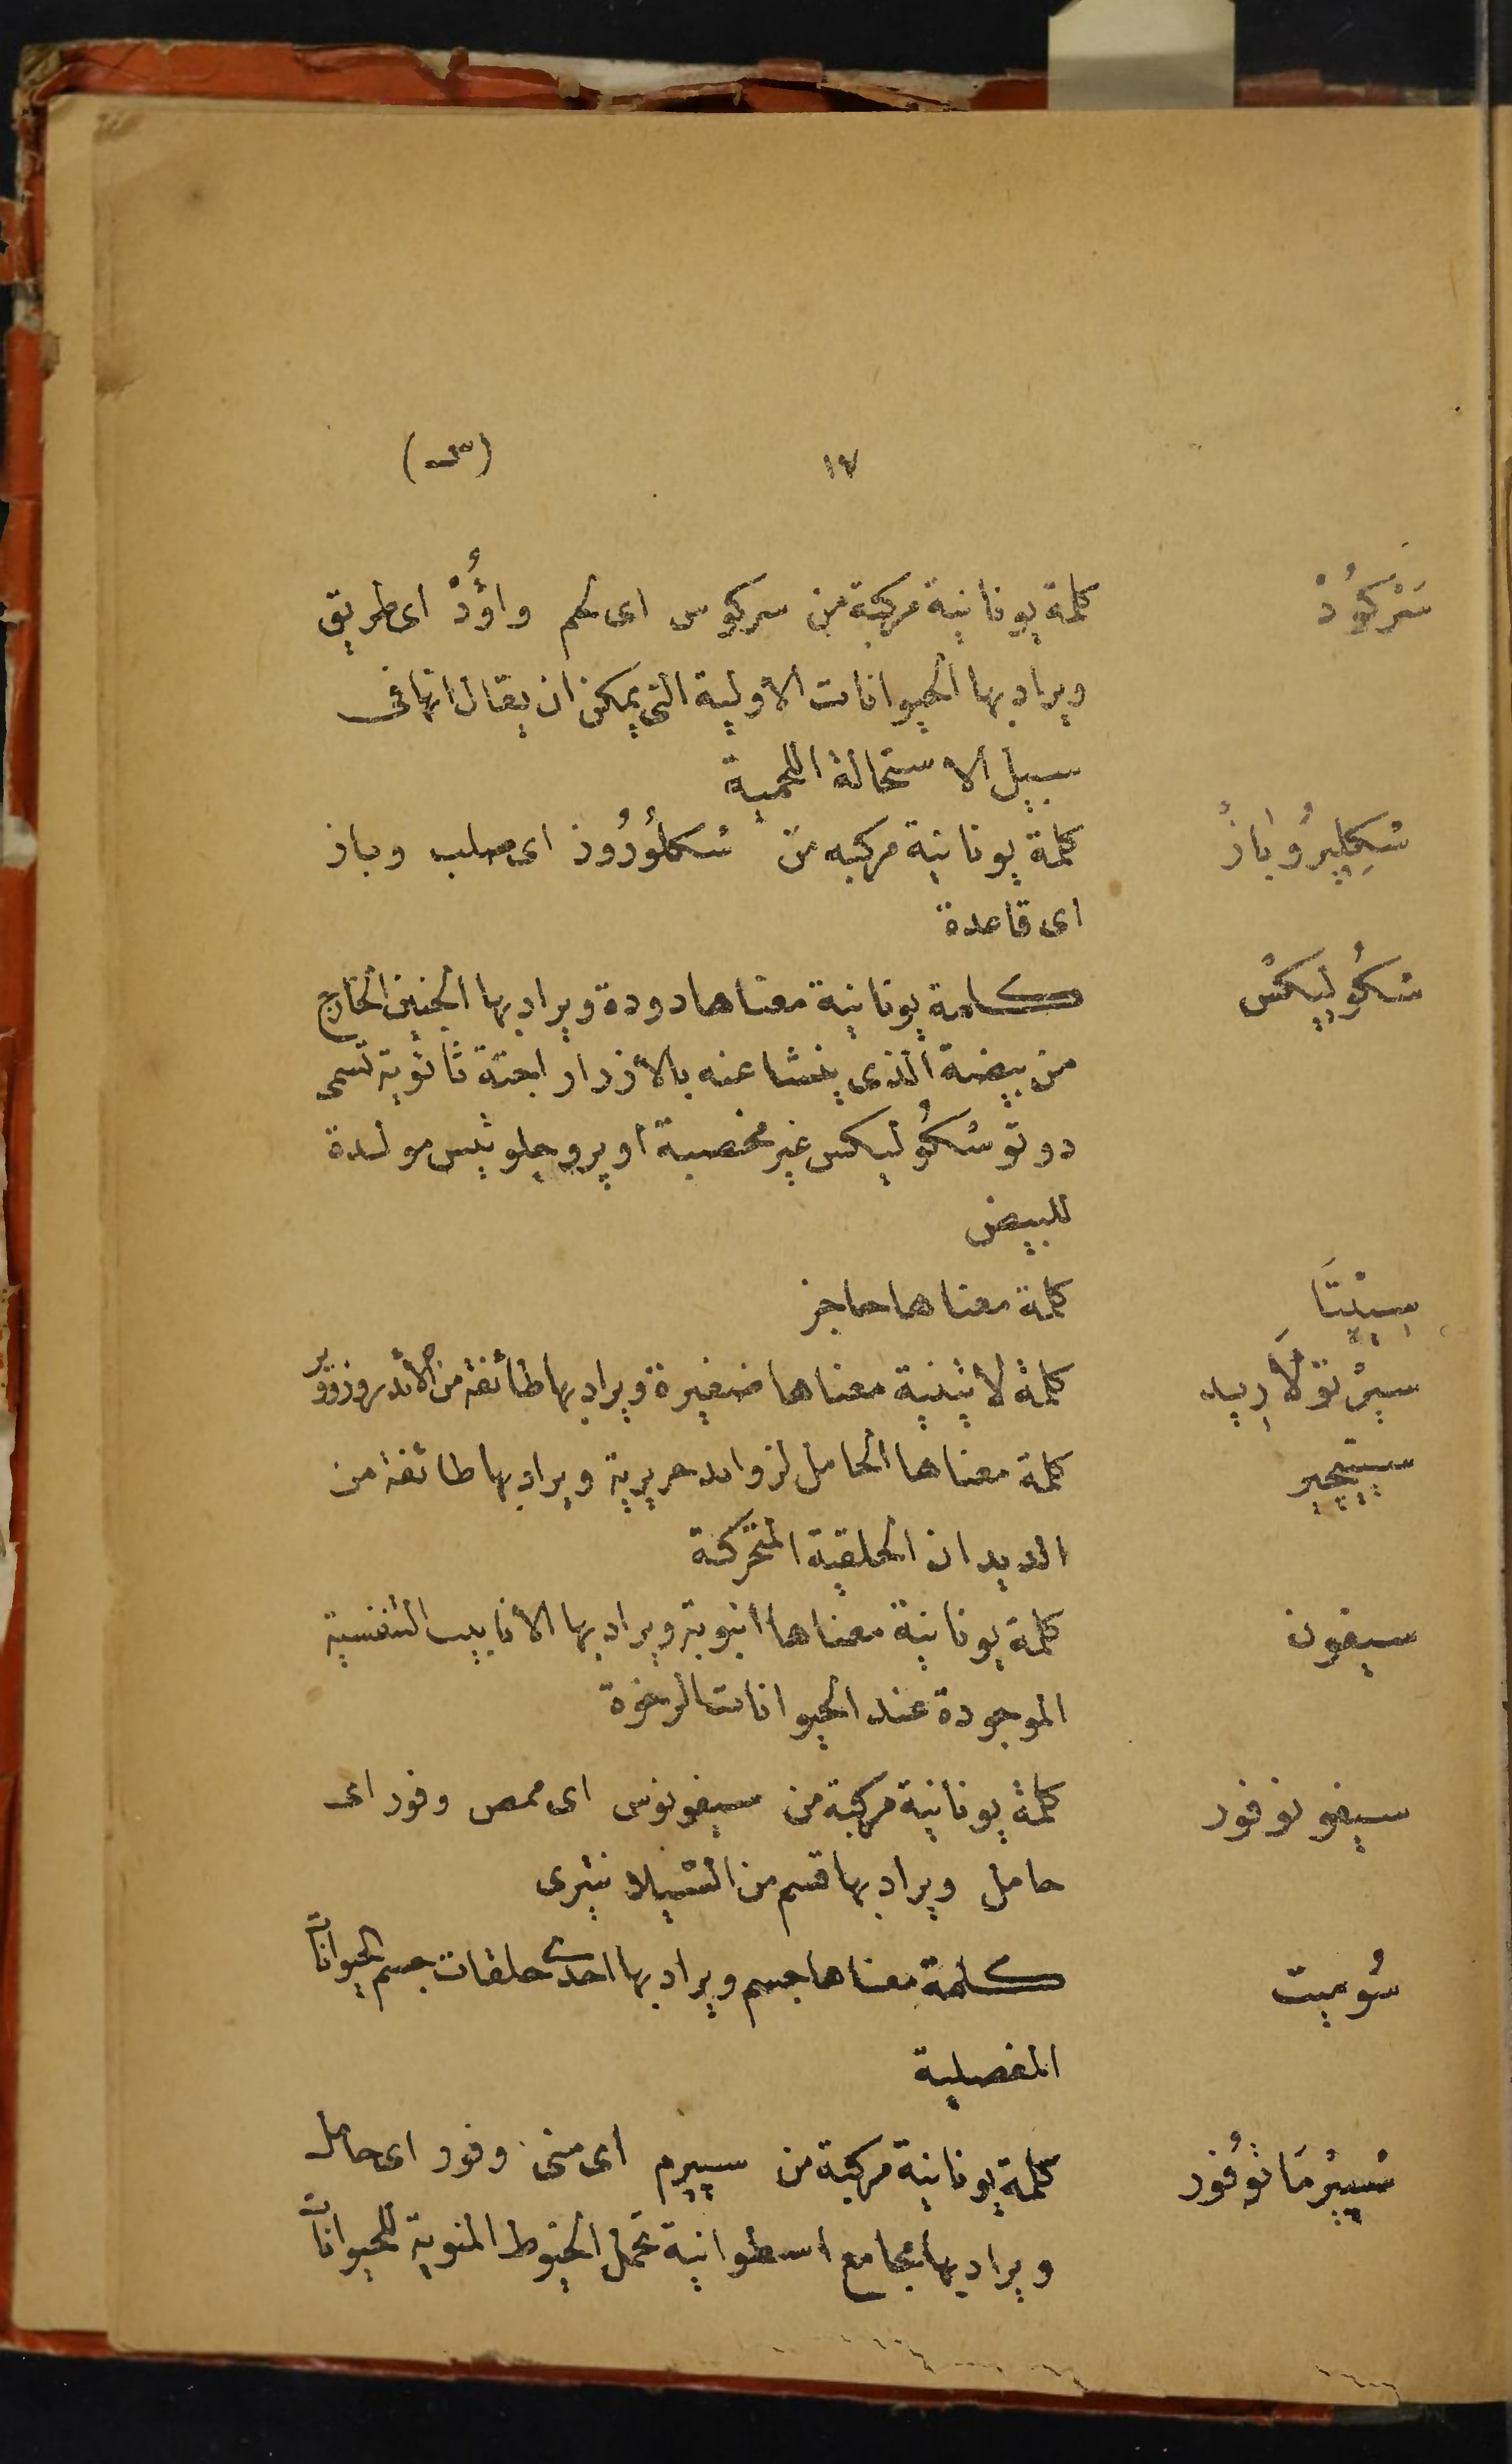 ١٧ (س)
سَرْكُودْ كلمة يونانية مركبة من سركوس اى لحم واُؤدْ اى طريق
ويراد بها الحيوانات الأولية التى يمكن ان يقال انها فى
سبيل الاستحالة اللحمية
سْكِليِرُوباَزْ كلمة يونانية مركبه من سْكلُورُوز اى صلب وباز
اى قاعدة
سْكُوليكسْ كلمة يونانية معناها دودة ويراد بها الجنين الخارج
من بيضة الذى ينشا عنه بالأزرار اجنة ثانوية تسمى
دوتو سْكُوليكس غير مخصبة او پروجلوتيس مولدة
للبيض
سِپْتَا كلمة معناها حاجز
سيرْتولاَرِيد كلمة لاتينية معناها ضفيرة ويراد بها طائفة من الأئدروزوير
سيتيجير كلمة معناها الحامل لزوائد حريرية ويراد بها طائفة من
الديدان الحلقية المتحركة
سيفون كلمة يونانية معناها انبوبة ويراد بها الأنابيب التنفسية
الموجودة عند الحيوانات الرخوة
سيفونوفور كلمة يونانية مركبة من سيفونوس اى ممص وفور اى
حامل ويراد بها قسم من السّيلانتيرى
سُوميت كلمة معناها جسم ويراد بها احدى حلقات جسم الحيوانات
المفصلية
سْپيرْمَاتوُفور كلمة يونانية مركبة من سپيرم اى منى وفور اى حامل
ويراد بها مجامع اسطوانية تحمل الخيوط المنوية للحيوانات